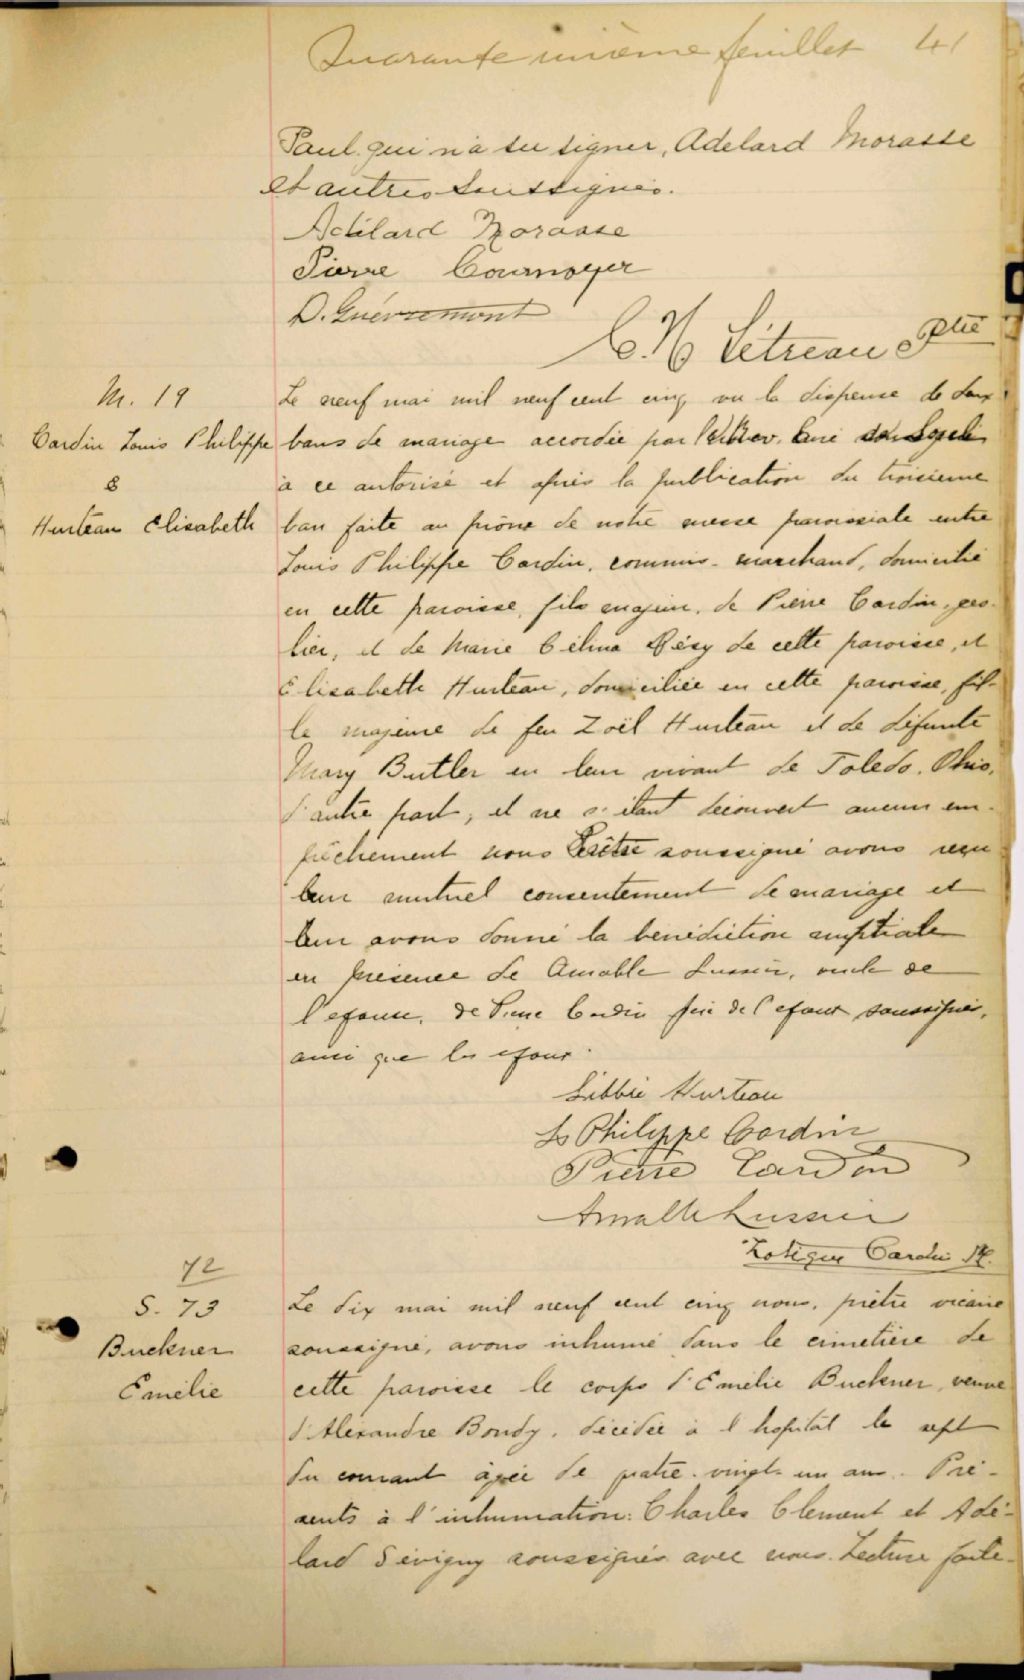 Quarante unième feuillet 41
Paul qui n'a su signer, Adelard Morasse
et autres soussignés.
Adélard Morasse
Pierre Cournoyer
D. Guévremont
C. H. Létreau Ptre
M. 19
Cardin Louis Philippe
&
Hurteau Elisabeth
Le neuf mai mil neuf cent cinq vu la dispense de deux
bans de mariage accordée par
à ce autorisé et après la publication du troisième
ban faite au prône de notre messe paroissiale entre
Louis Philippe Cardin, commis-marchand, domicilié
en cette paroisse, fils majeur, de Pierre Cardin, geo-
lier, et de Marie Célina de cette paroisse, et
Elisabeth Hurteau, domiciliée en cette paroisse, fil-
le majeure de feu Zoël Hurteau et de défunte
Mary Butler en leur vivant de Toledo, Ohio,
d'autre part, et ne s'étant découvert aucun em-
pêchement nous Prêtre soussigné avons reçu
leur mutuel consentement de mariage et
leur avons donné la bénédiction nuptiale
en présence de Amable Lussier, oncle de
l'épouse, de Pierre Cardin père de l'époux soussignés,
ainsi que les époux.
Libbie Hurteau
Ls Philippe Cardin
Pierre Cardin
Amable Lussier
Zotique Cardin Ptr.
72
S. 73
Buckner
Emélie
Le dix mai mil neuf cent cinq nous, prêtre vicaire
soussigné, avons inhumé dans le cimetière de
cette paroisse le corps d'Emélie Buckner, veuve
d'Alexandre Bondy, décédée à l'hopital le sept
du courant âgée de quatre-vingt-un ans. Pré-
sents à l'inhumation: Charles Clement et Adé-
lard Sévigny soussignés avec nous. Lecture faite.